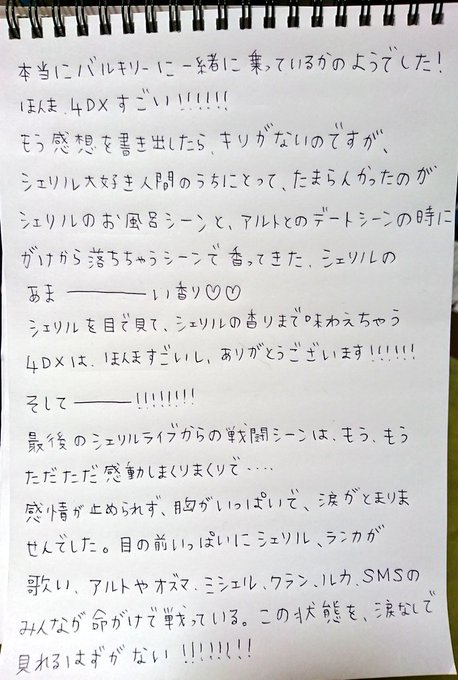 本当にバルキリーに一緒に乗っているかのようでした!
ほんま、4DXすごい!!!!!!
もう感想を書き出したら、キリがないのですが、
シェリル大好き人間のうちにとって、たまらんかったのが
シェリルのお風呂シーンと、アルトとのデートシーンの時に
がけから落ちちゃうシーンで香ってきた、シェリルの
あま――――い香り♡♡
シェリルを目で見て、シェリルの香りまで味わえちゃう
4DXは、ほんますごいし、ありがとうございます!!!!!!
そして――――!!!!!!!!
最後のシェリルライブからの戦闘シーンは、もう、もう
ただただ感動しまくりまくりで····
感情が止められず、胸がいっぱいで、涙がとまりま
せんでした。目の前いっぱいにシェリル、ランカが
歌い、アルトやオズマ、ミシェル、クラン、ルカ、SMSの
みんなが命がけで戦っている。この状態を、涙なしで
見れるはずがない!!!!!!!!